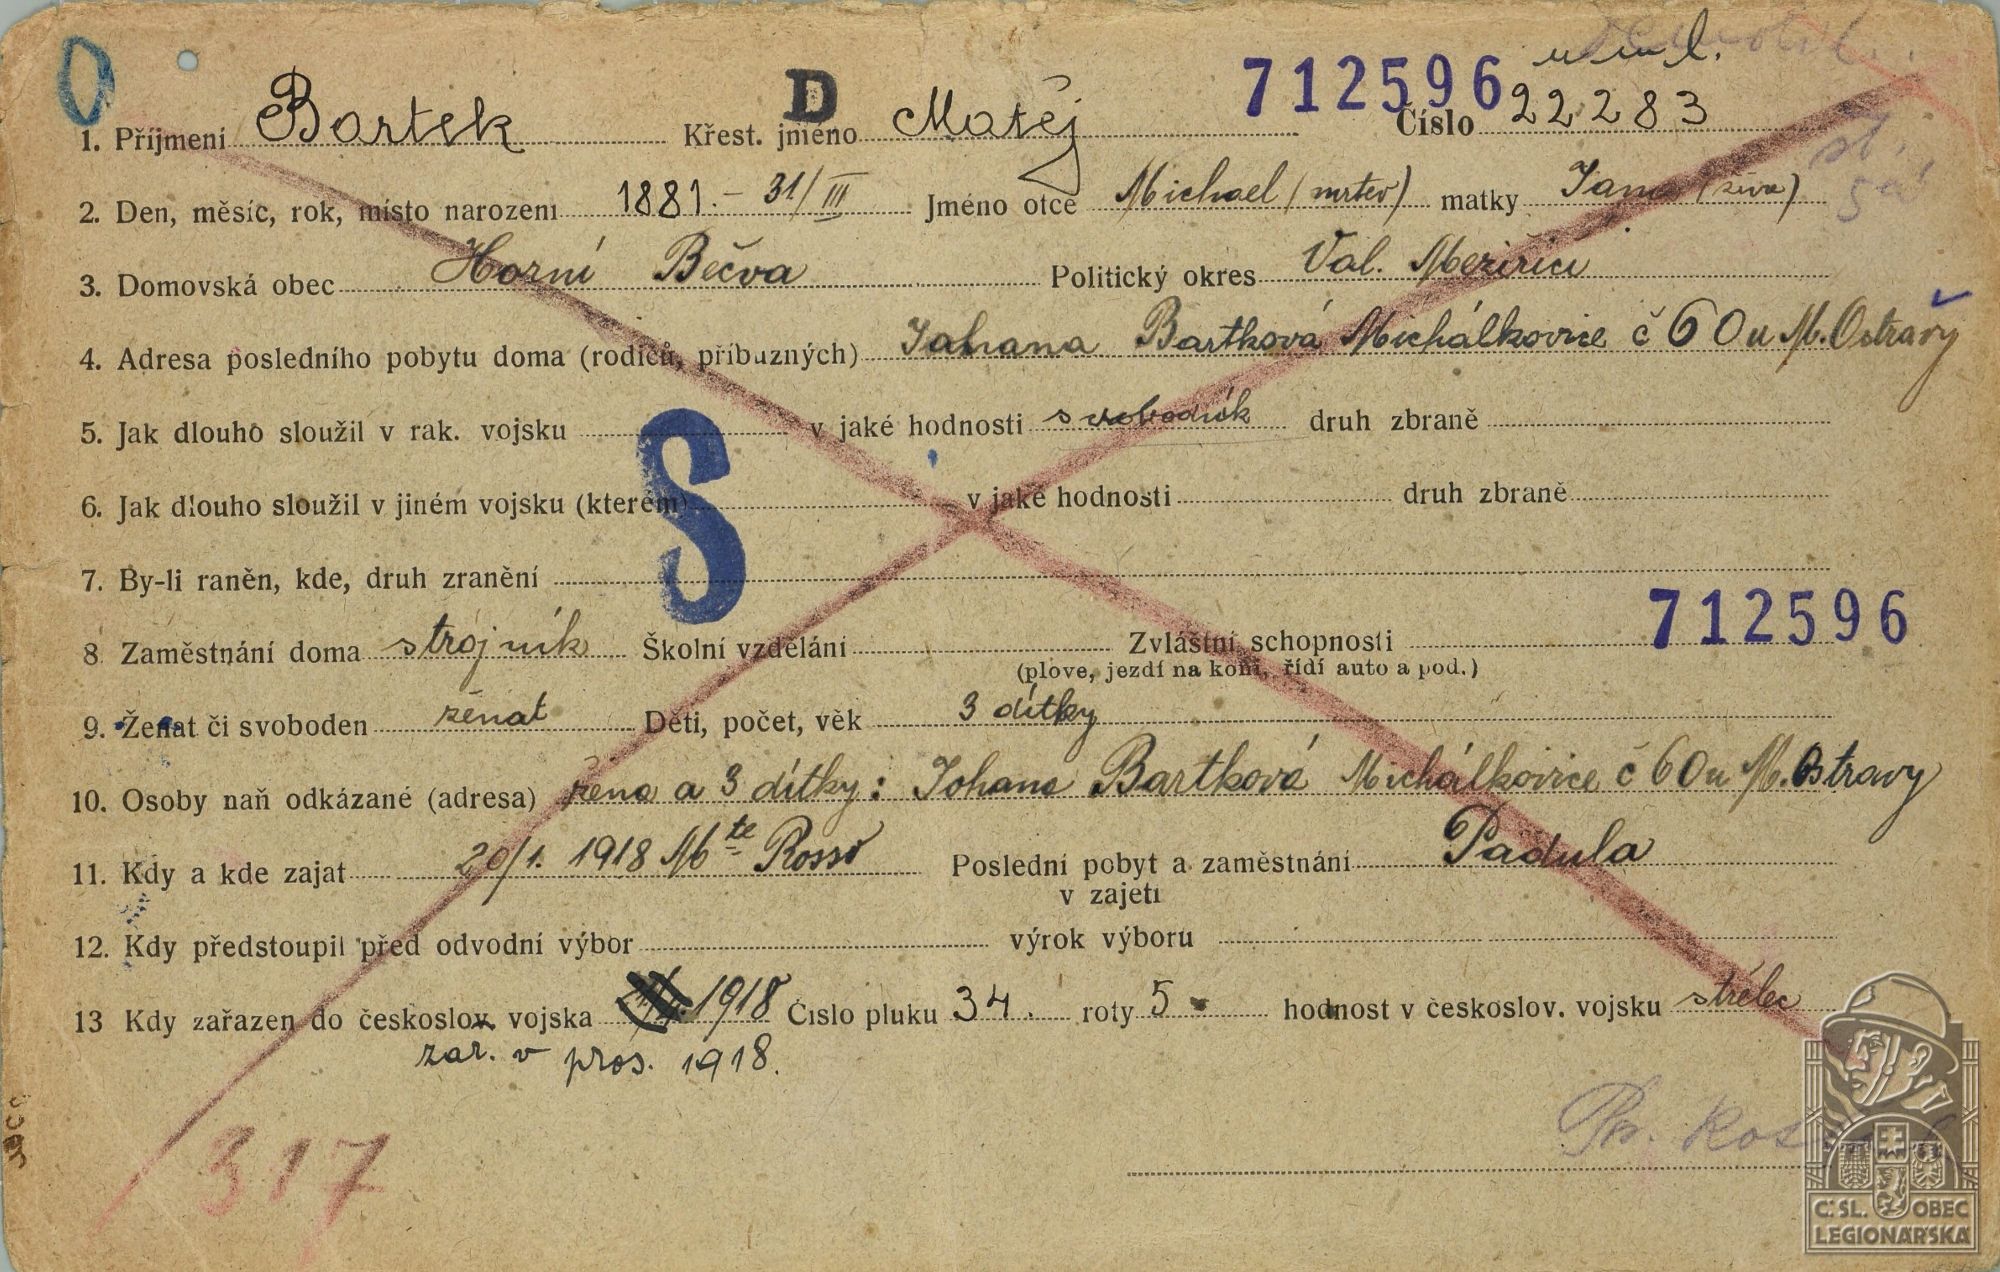 u ml.
D 712596
1. Příjmení Bartek Křest. jméno Matěj Číslo 22283
2. Den, měsíc, rok, místo narození 1881. - 31/III Jméno otce Michael (mrtev) matky Jana (živa)
3. Domovská obec Horní Bečva Politický okres Val. Meziřici
4. Adresa posledního pobytu doma (rodičů, příbuzných) Johana Bartková Michálkovice č 60 u M. Ostravy
5. Jak dlouho sloužil v rak. vojsku v jaké hodnosti svobodník druh zbraně
6. Jak dlouho sloužil v jiném vojsku (kterém) v jaké hodnosti druh zbraně
S
7. By-li raněn, kde, druh zranění
712596
8 Zaměstnání doma strojník Školní vzdělání Zvláštní schopnosti
(plove, jezdí na koni, řídí auto a pod.)
9. Ženat či svoboden ženat Děti, počet, věk 3 dítky
10. Osoby naň odkázané (adresa) žena a 3 dítky: Johana Bartková Michálkovice č 60 u M. Ostravy
11. Kdy a kde zajat 20/1. 1918 Mte Rosso Poslední pobyt a zaměstnání Padula
v zajetí
12. Kdy předstoupil před odvodní výbor výrok výboru
13 Kdy zařazen do českoslov. vojska 1918 Číslo pluku 34. roty 5. hodnost v českoslov. vojsku střelec
zar. v pros. 1918.
317
Č. SL. OBEC
LEGIONÁŘSKÁ